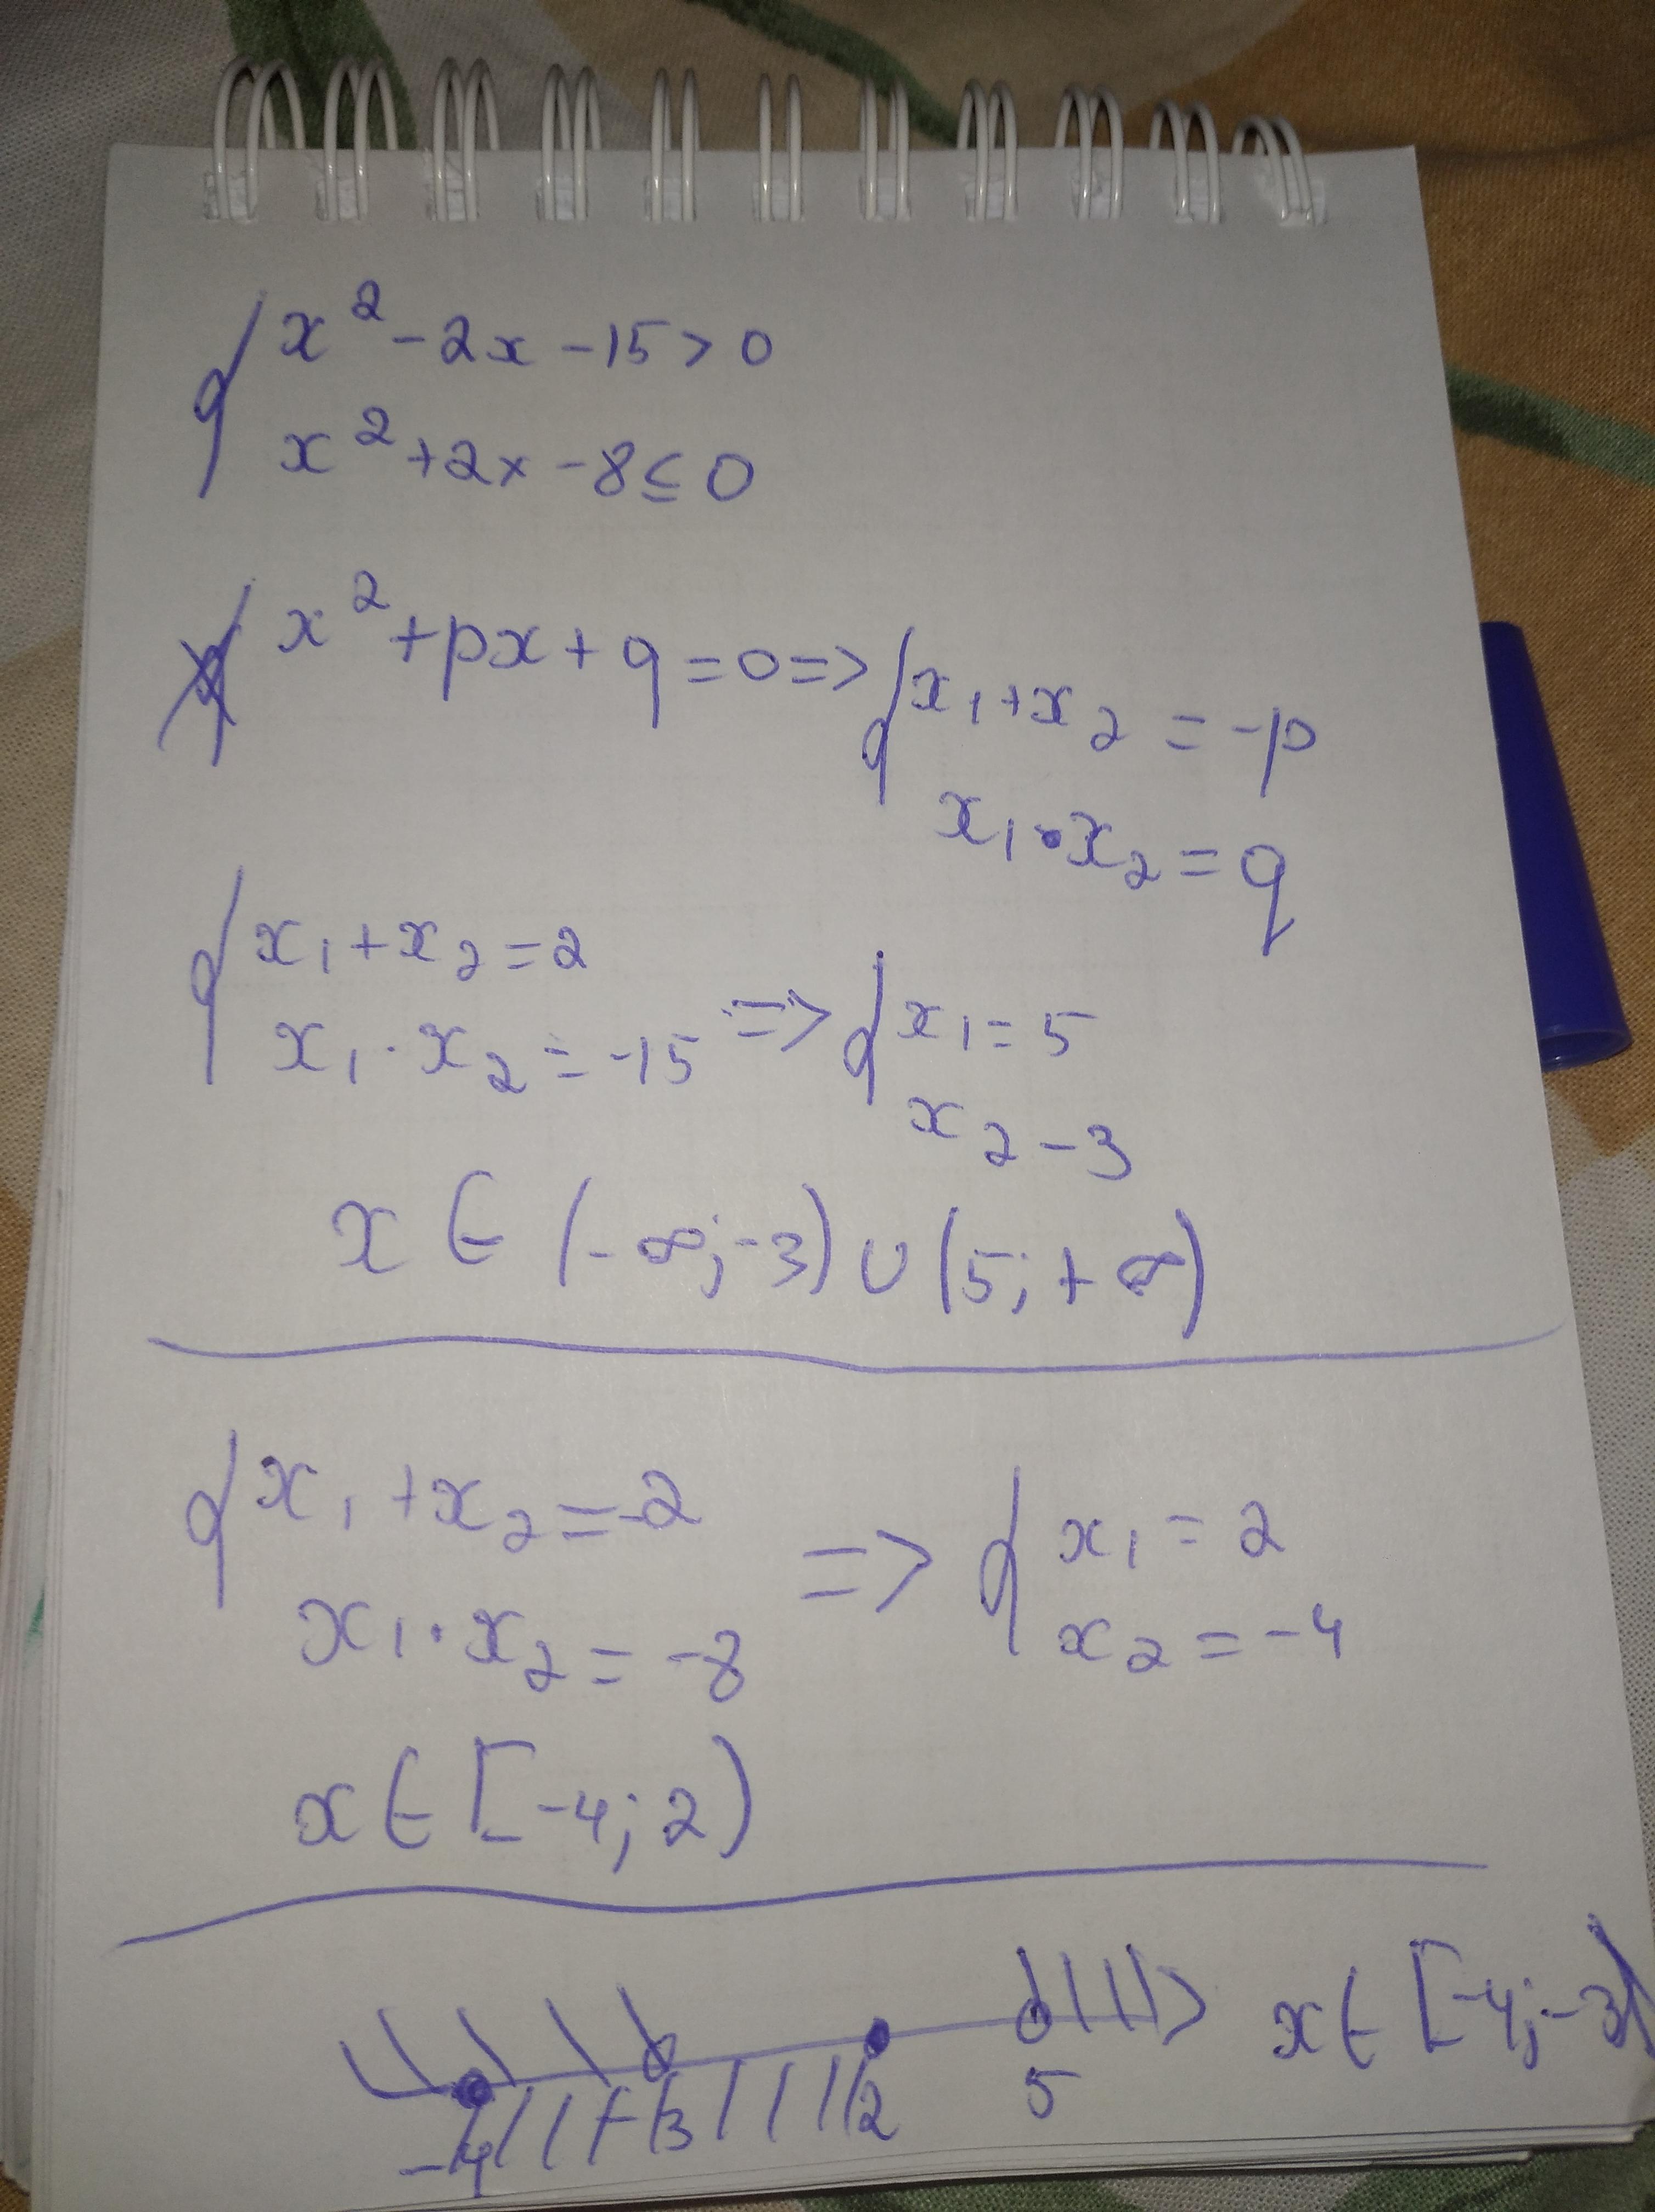 { x² - 2x - 15 > 0
x² + 2x - 8 ≤ 0
x² + px + q = 0 => { x₁ + x₂ = -p
x₁ • x₂ = q
{ x₁ + x₂ = 2
x₁ · x₂ = -15 => { x₁ = 5
x₂ - 3
x ∈ (-∞; -3) ∪ (5; +∞)
{ x₁ + x₂ = -2
x₁ · x₂ = -8 => { x₁ = 2
x₂ = -4
x ∈ [-4; 2)
x ∈ [-4; -3)
-4 -3 2 5